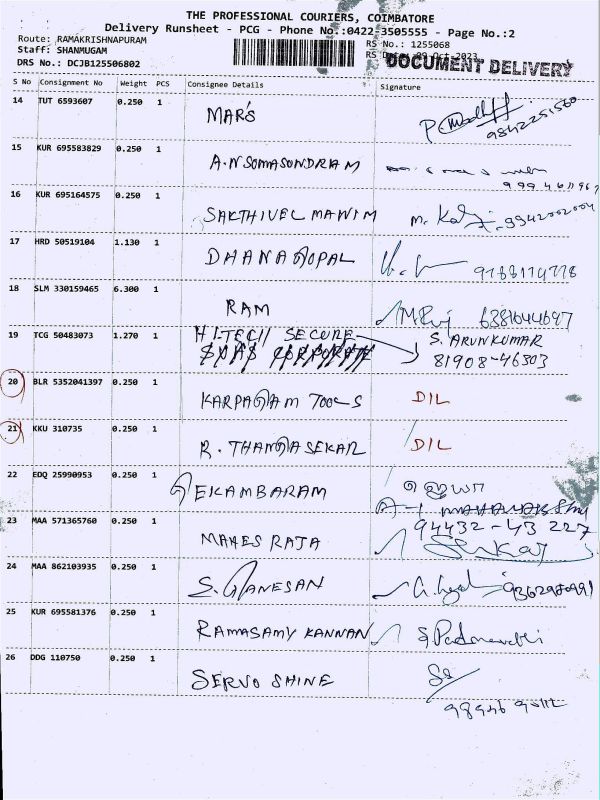 THE PROFESSIONAL COURIERS, COIMBATORE
Delivery Runsheet - PCG - Phone No.:0422-3505555 - Page No.:2
Route: RAMAKRISHNAPURAM
RS No.: 1255068
Staff: SHANMUGAM
RS Date: 09-Oct-2023
DRS No.: DCJB125506802
DOCUMENT DELIVERY
S No Consignment No Weight PCS Consignee Details Signature
14 TUT 6593607 0.250 1 MARS
9842251560
15 KUR 695583829 0.250 1 A.N SOMASONDRAM
16 KUR 695164575 0.250 1 SAKTHIVEL MANIM
17 HRD 50519104 1.130 1 DHANAGOPAL
18 SLM 330159465 6.300 1 RAM
6381644697
19 TCG 50483073 1.270 1 HI-TECH SECURE S. ARUNKUMAR
81908-46303
20 BLR 5352041397 0.250 1 KARPAGAM TOOLS DIL
21 KKU 310735 0.250 1 R. THANGASEKAR DIL
22 EDQ 25990953 0.250 1 EKAMBARAM
94432-43 227
23 MAA 571365760 0.250 1 MAHES RAJA
24 MAA 862103935 0.250 1 S. GANESAN
25 KUR 695581376 0.250 1 RAMASAMY KANNAN
26 DDG 110750 0.250 1 SERVO SHINE